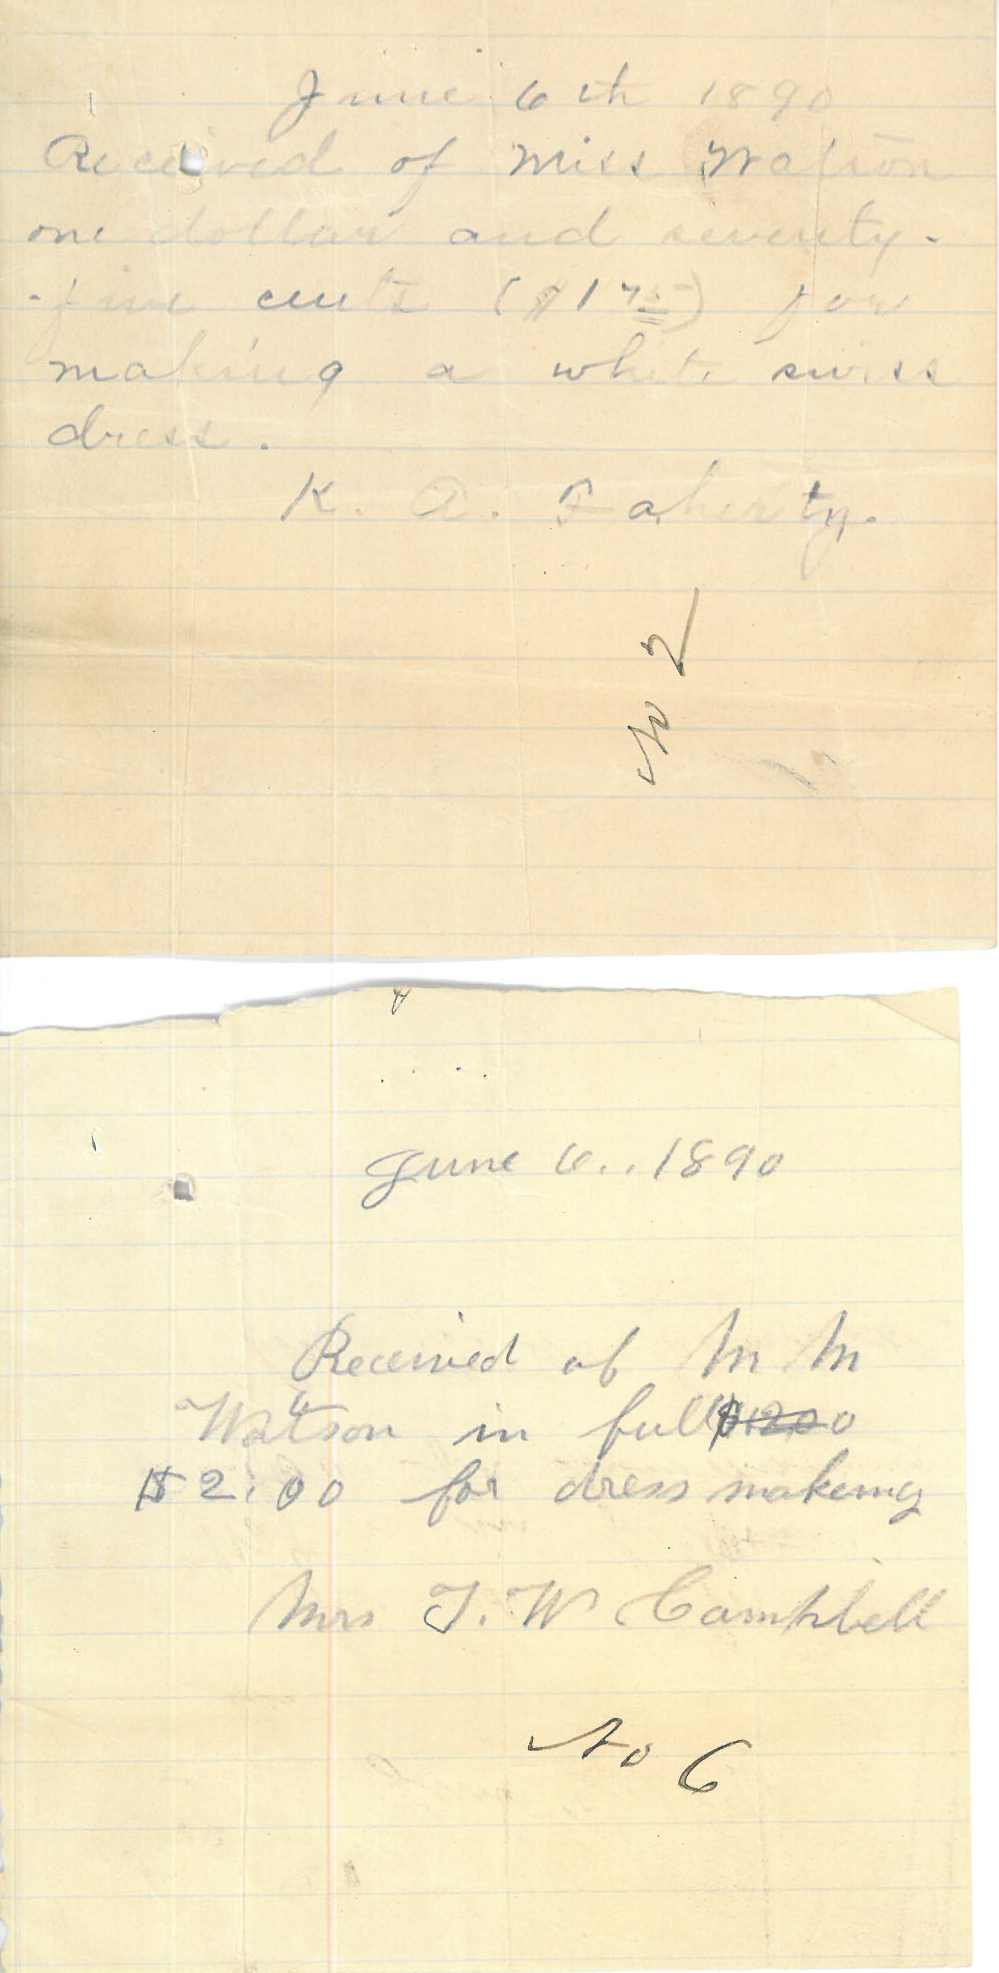 June 6th 1890
Received of Miss Watson
one dollar and seventy-
-five cents ($1 75) for
making a white swiss
dress.
K. A. Faherty.
No 2
June 6..1890
Received of M M
Watson in full $12.00
$2.00 for dress makeing
Mrs T. W Campbell
No 6